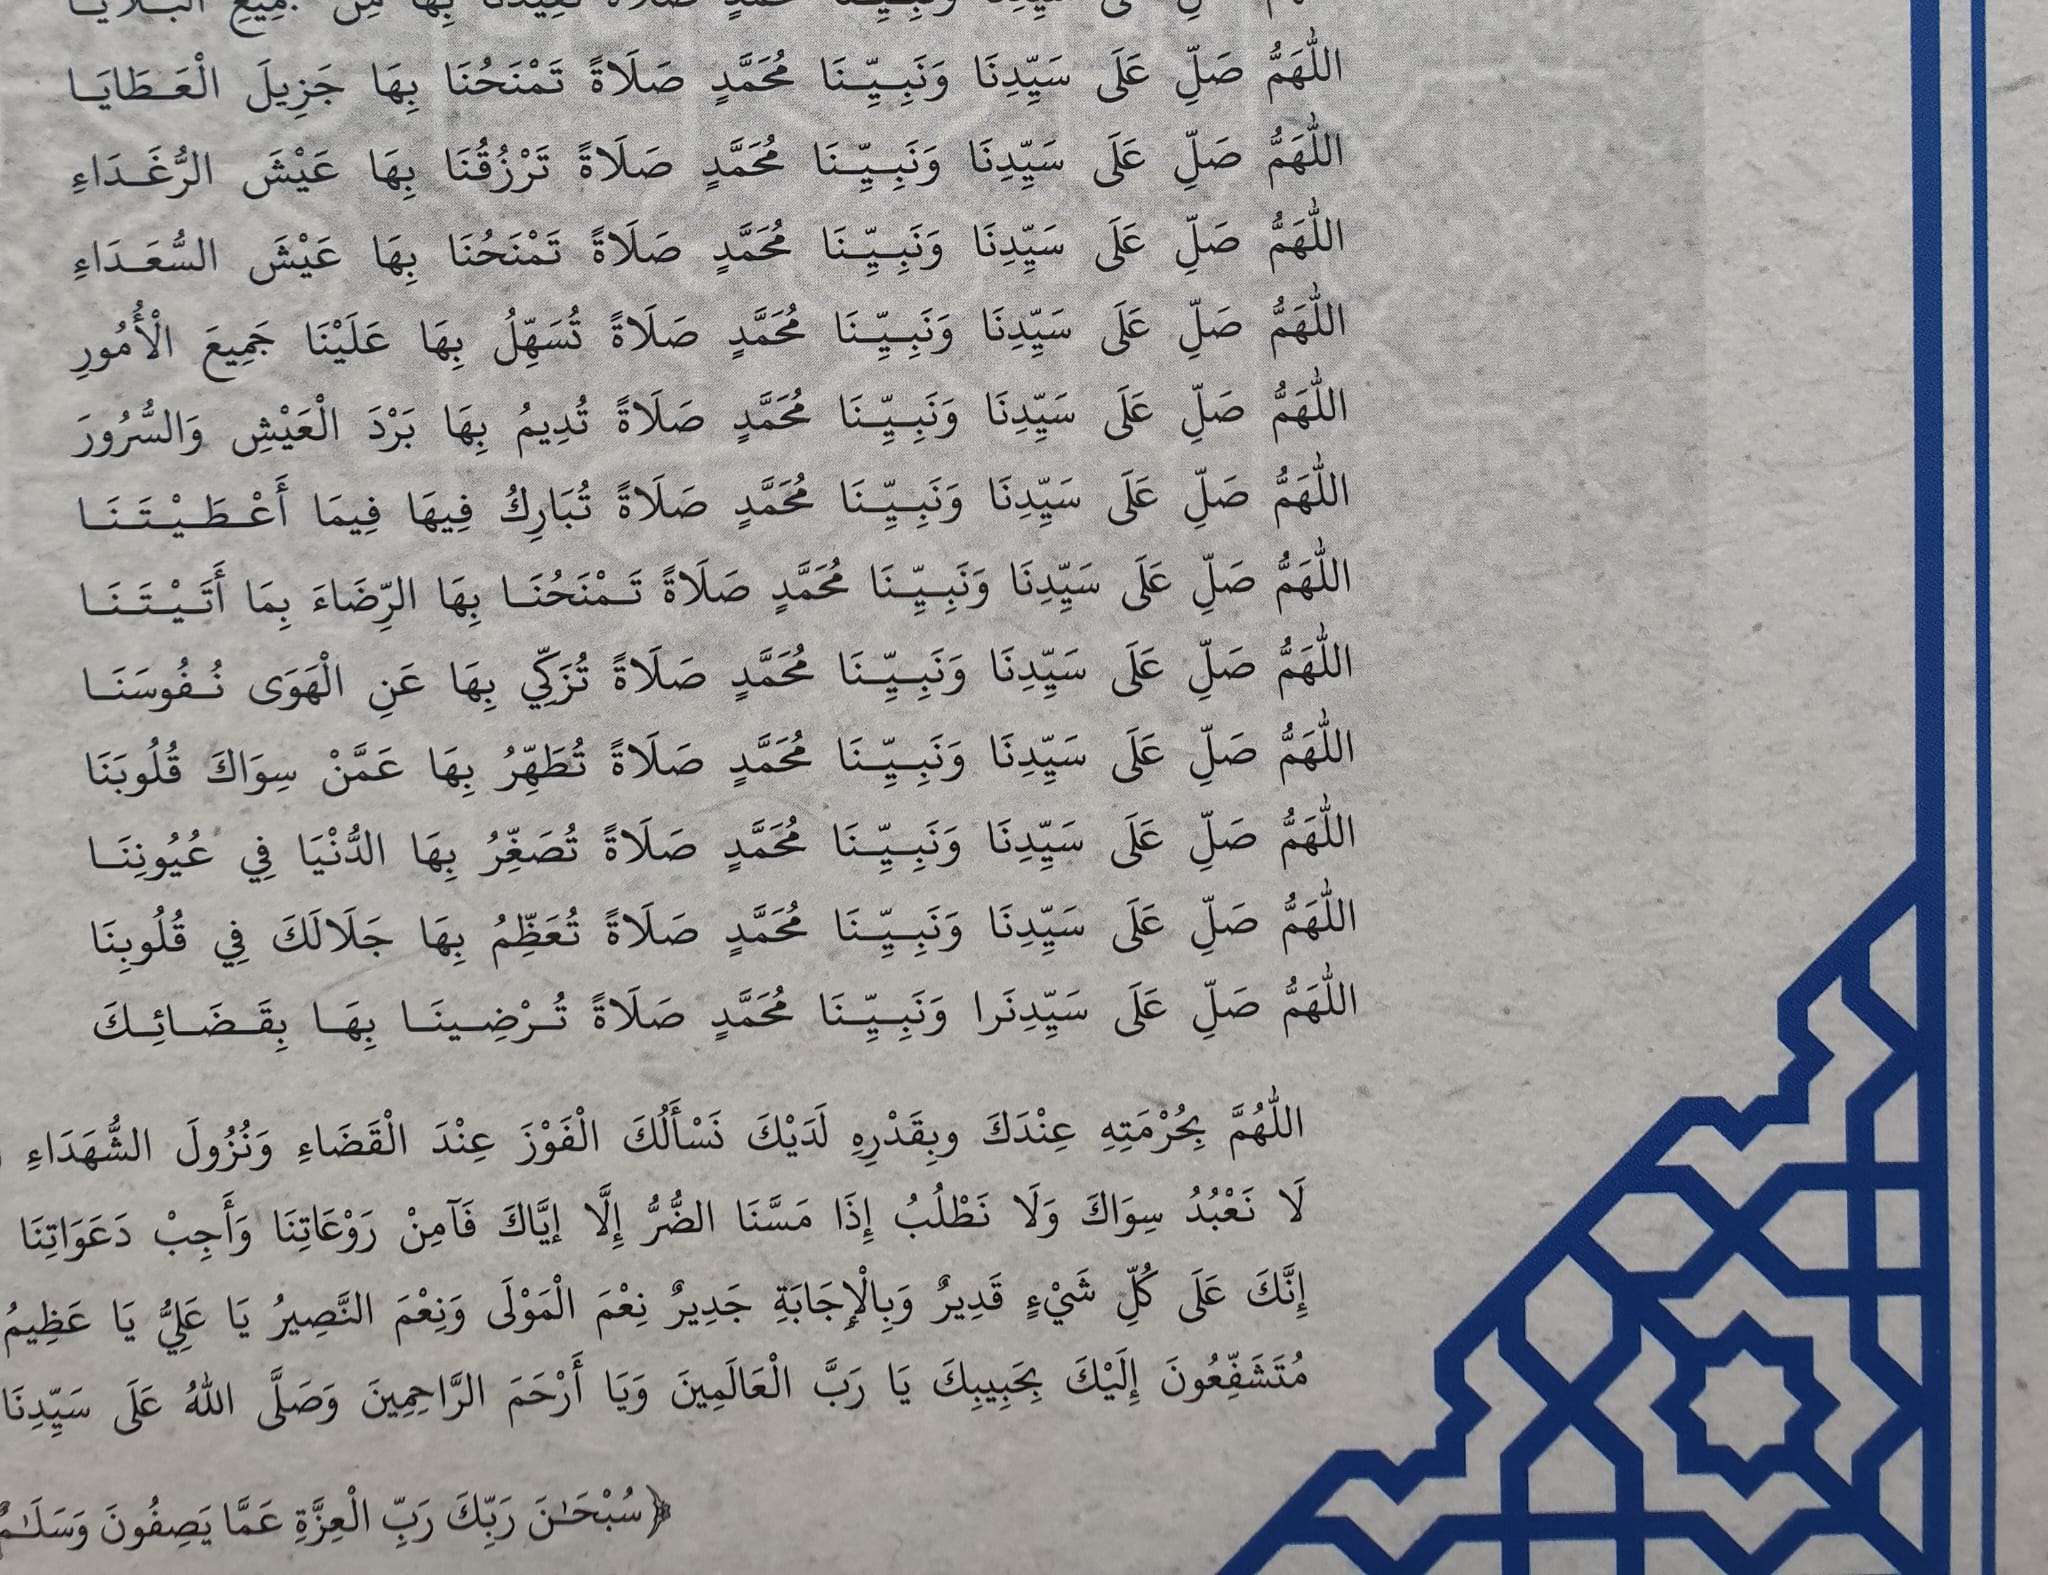 سَيِّدِنَا وَنَبِيِّنَا مُحَمَّدٍ صَلَاةً تُعِيذُنَا بِهَا مِنْ جَمِيعِ الْبَلَايَا
اللّٰهَمُّ صَلِّ عَلَى سَيِّدِنَا وَنَبِيِّنَا مُحَمَّدٍ صَلَاةً تَمْنَحُنَا بِهَا جَزِيلَ الْعَطَايَا
اللّٰهَمُّ صَلِّ عَلَى سَيِّدِنَا وَنَبِيِّنَا مُحَمَّدٍ صَلَاةً تَرْزُقُنَا بِهَا عَيْشَ الرُّغَدَاءِ
اللّٰهَمُّ صَلِّ عَلَى سَيِّدِنَا وَنَبِيِّنَا مُحَمَّدٍ صَلَاةً تَمْنَحُنَا بِهَا عَيْشَ السُّعَدَاءِ
اللّٰهَمُّ صَلِّ عَلَى سَيِّدِنَا وَنَبِيِّنَا مُحَمَّدٍ صَلَاةً تُسَهِّلُ بِهَا عَلَيْنَا جَمِيعَ الْأُمُورِ
اللّٰهَمُّ صَلِّ عَلَى سَيِّدِنَا وَنَبِيِّنَا مُحَمَّدٍ صَلَاةً تُدِيمُ بِهَا بَرْدَ الْعَيْشِ وَالسُّرُورَ
اللّٰهَمُّ صَلِّ عَلَى سَيِّدِنَا وَنَبِيِّنَا مُحَمَّدٍ صَلَاةً تُبَارِكُ فِيهَا فِيمَا أَعْطَيْتَنَا
اللّٰهَمُّ صَلِّ عَلَى سَيِّدِنَا وَنَبِيِّنَا مُحَمَّدٍ صَلَاةً تَمْنَحُنَا بِهَا الرِّضَاءَ بِمَا أَتَيْتَنَا
اللّٰهَمُّ صَلِّ عَلَى سَيِّدِنَا وَنَبِيِّنَا مُحَمَّدٍ صَلَاةً تُزَكِّي بِهَا عَنِ الْهَوَى نُفُوسَنَا
اللّٰهَمُّ صَلِّ عَلَى سَيِّدِنَا وَنَبِيِّنَا مُحَمَّدٍ صَلَاةً تُطَهِّرُ بِهَا عَمَّنْ سِوَاكَ قُلُوبَنَا
اللّٰهَمُّ صَلِّ عَلَى سَيِّدِنَا وَنَبِيِّنَا مُحَمَّدٍ صَلَاةً تُصَغِّرُ بِهَا الدُّنْيَا فِي عُيُونِنَا
اللّٰهَمُّ صَلِّ عَلَى سَيِّدِنَا وَنَبِيِّنَا مُحَمَّدٍ صَلَاةً تُعَظِّمُ بِهَا جَلَالَكَ فِي قُلُوبِنَا
اللّٰهَمُّ صَلِّ عَلَى سَيِّدِنَرا وَنَبِيِّنَا مُحَمَّدٍ صَلَاةً تُرْضِينَا بِهَا بِقَضَائِكَ
اللّٰهُمَّ بِحُرْمَتِهِ عِنْدَكَ وبِقَدْرِهِ لَدَيْكَ نَسْأَلُكَ الْفَوْزَ عِنْدَ الْقَضَاءِ وَنُزُولَ الشُّهَدَاءِ
لَا نَعْبُدُ سِوَاكَ وَلَا نَطْلُبُ إِذَا مَسَّنَا الضُّرُّ إِلَّا إيَّاكَ فَآمِنْ رَوْعَاتِنَا وَأَجِبْ دَعَوَاتِنَا
إِنَّكَ عَلَى كُلِّ شَيْءٍ قَدِيرٌ وَبِالْإِجَابَةِ جَدِيرٌ نِعْمَ الْمَوْلَى وَنِعْمَ النَّصِيرُ يَا عَلِيُّ يَا عَظِيمُ
مُتَشَفِّعُونَ إِلَيْكَ بِحَبِيبِكَ يَا رَبَّ الْعَالَمِينَ وَيَا أَرْحَمَ الرَّاحِمِينَ وَصَلَّى اللهُ عَلَى سَيِّدِنَا
﴿سُبْحَـٰنَ رَبِّكَ رَبِّ الْعِزَّةِ عَمَّا يَصِفُونَ وَسَلَـٰمٌ